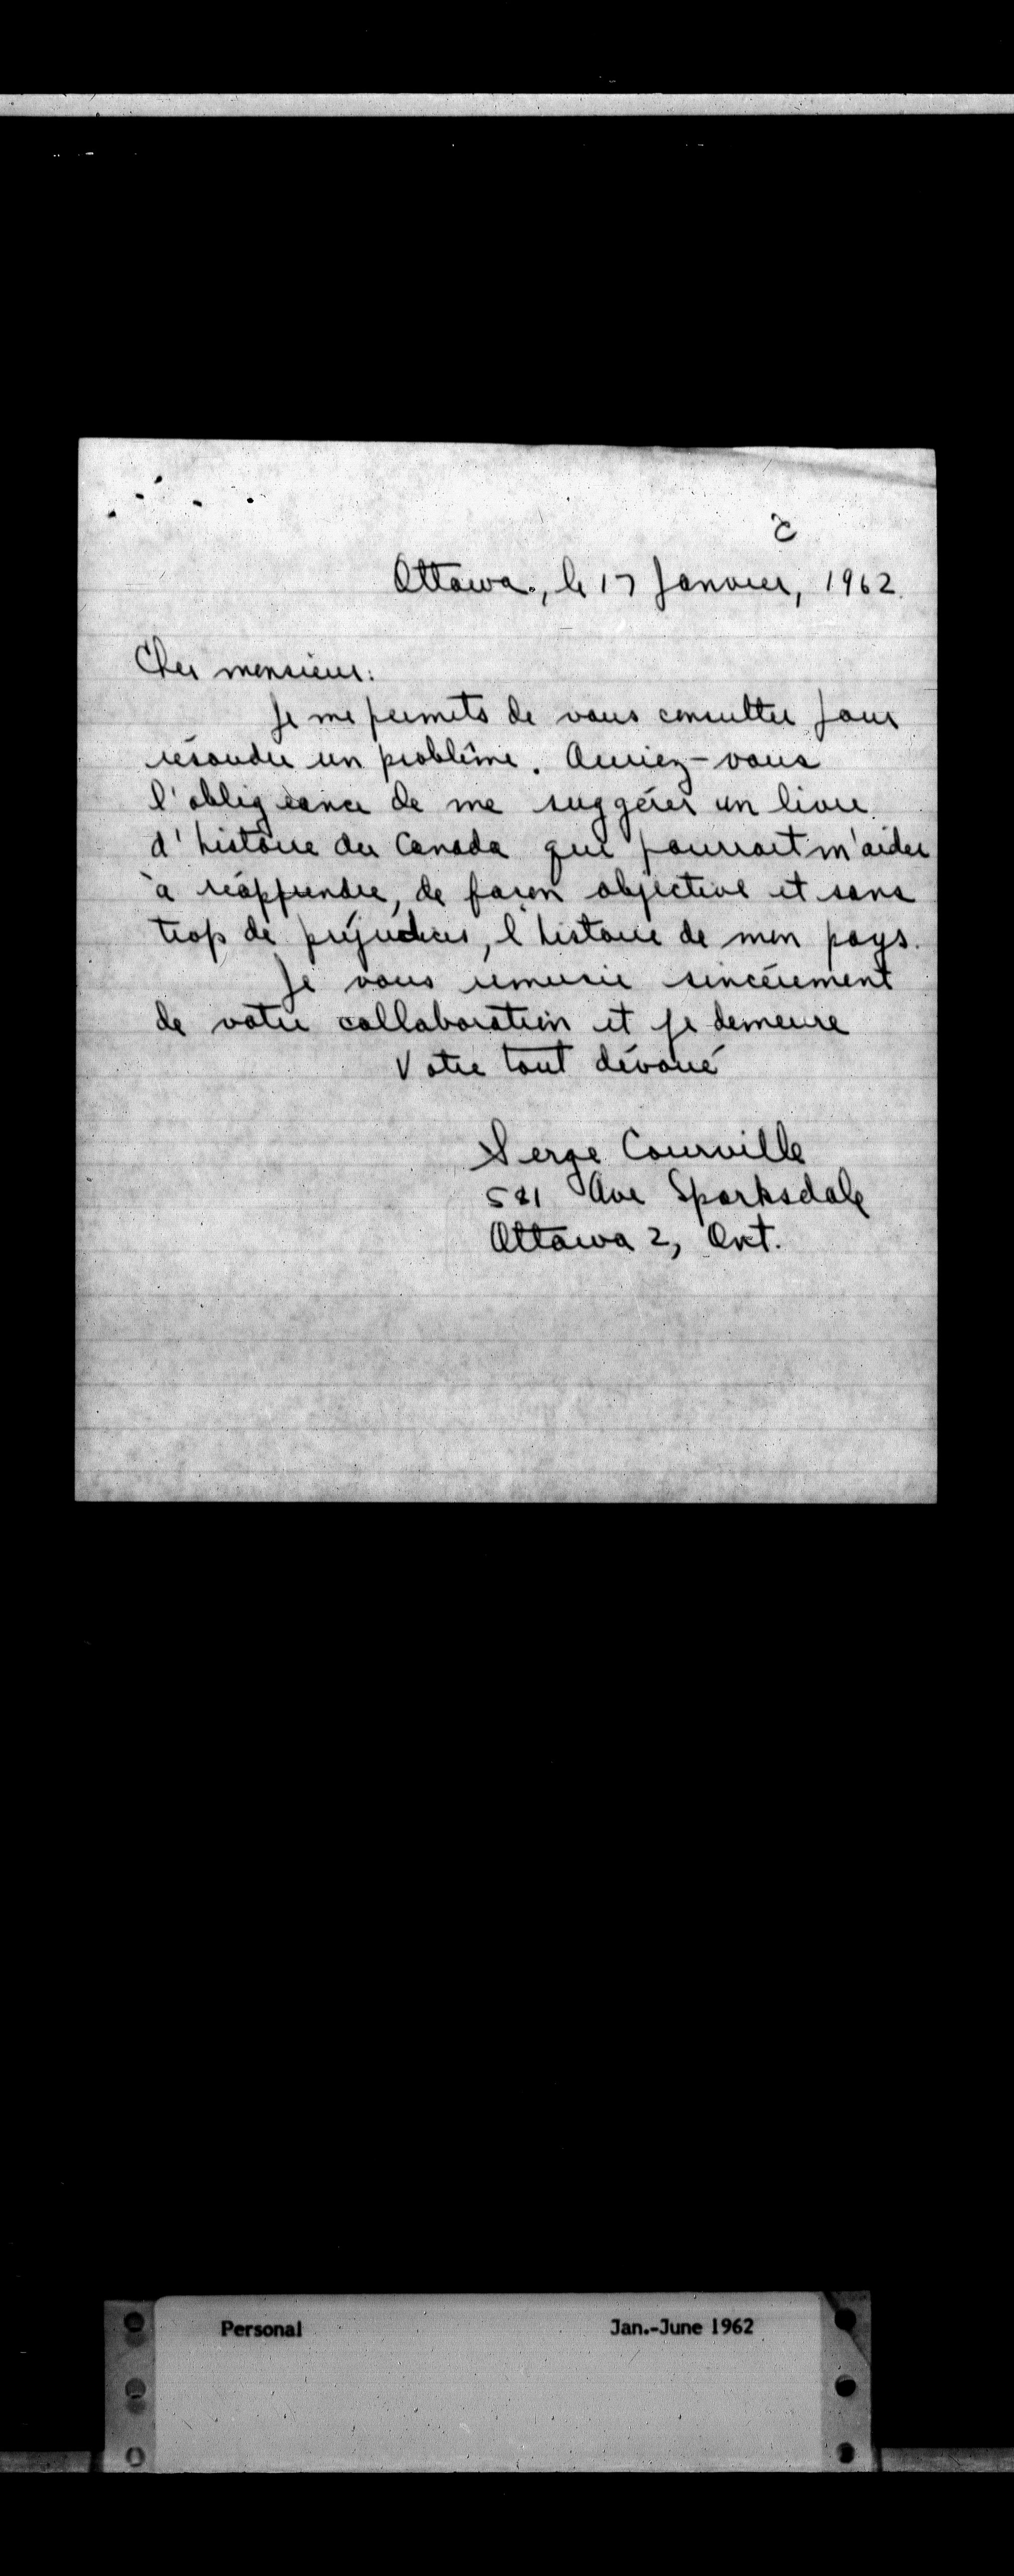 C
Ottawa., le 17 Janvier, 1962.
Cher monsieur:
Je me permets de vous consulter pour
résoudre un problème. Auriez-vous
l'obligeance de me suggérer un livre
d'histoire du Canada qui pourrait m'aider
à réapprendre, de façon objective et sans
trop de préjudices, l'histoire de mon pays.
Je vous remercie sincèrement
de votre collaboration et je demeure
Votre tout dévoué
Serge Courville
581 Ave Sparksdale
Ottawa 2, Ont.
Personal Jan.-June 1962